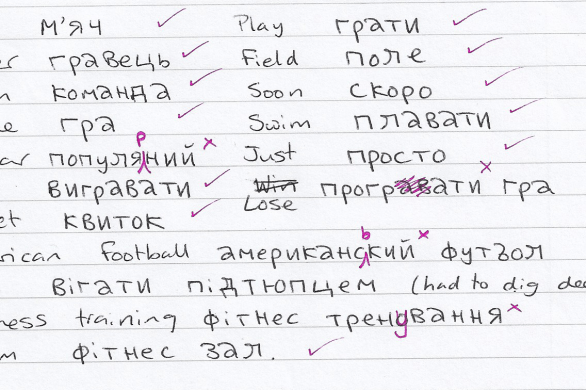 м'яч Play грати
er гравець Field поле
команда Soon скоро
гра Swim плавати
ar популярний Just просто
вигравати Win програвати гра
Lose
et квиток
rican football американський футбол
вігати підтюпцем (had to dig dee
ness training фітнес тренування
фітнес зал.